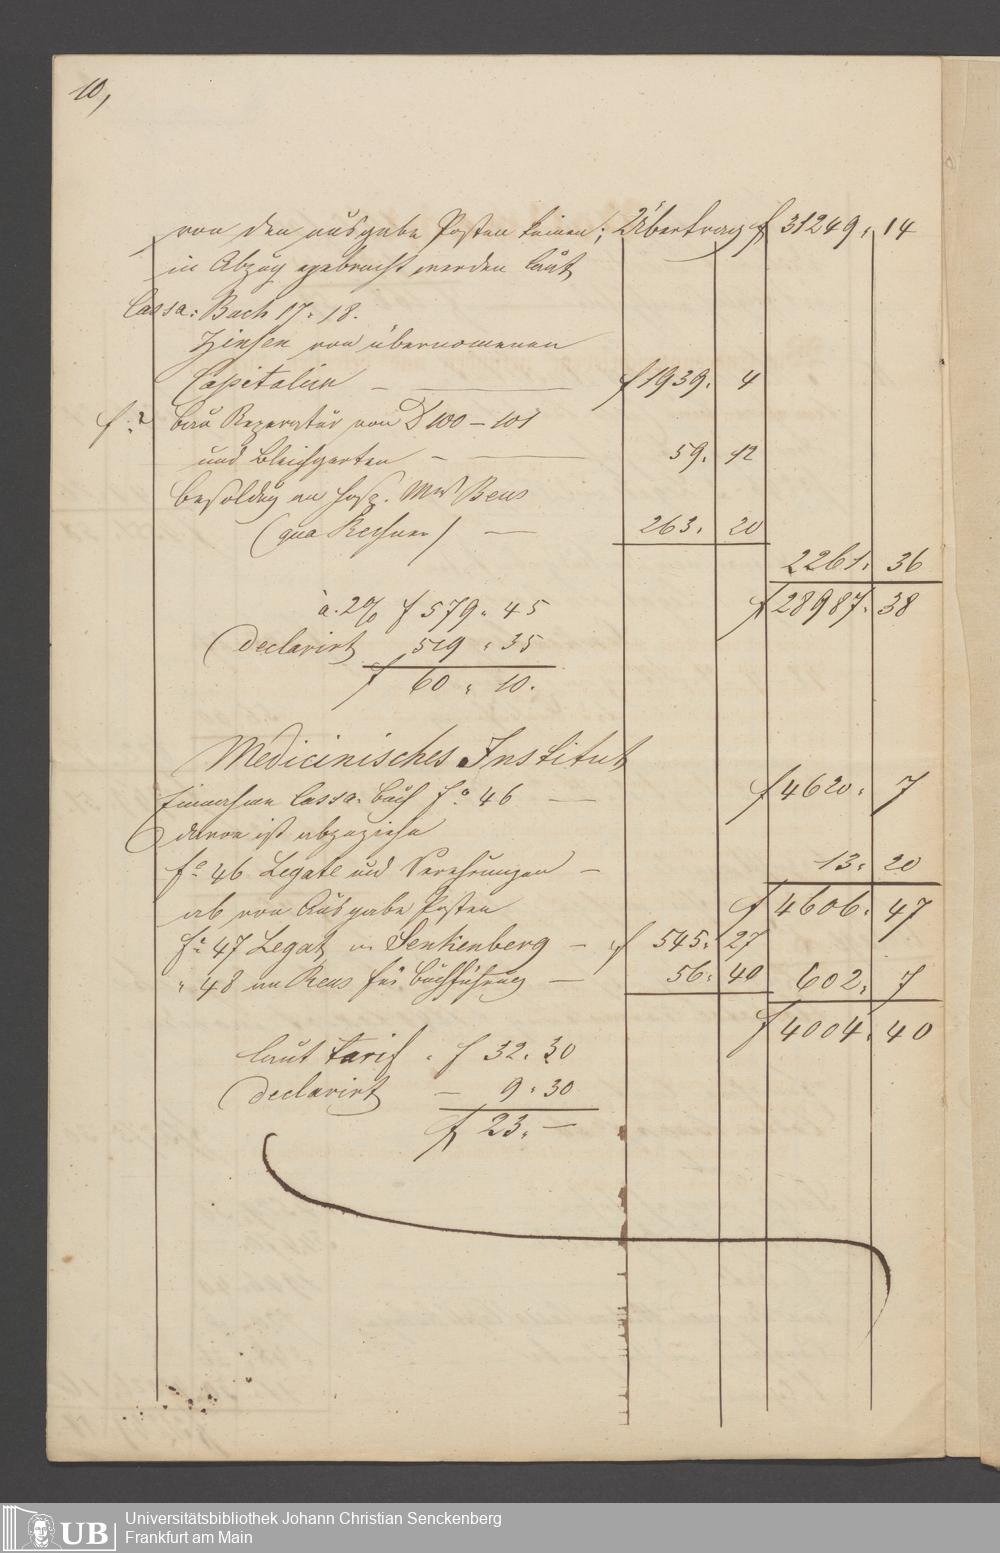 10,
von den ausgabe Posten können; Übertrag f 31249, 14
in Abzug gebracht werden laut
Cassa: Buch 17. 18.
Zinsen von übernomenen
Capitalien — f 1939. 4
Bau Reparatur von D 100 – 101
und Bleichgarten — 59. 12
Besoldg an Hosp. Mst Reus
(qua Rechner) — 263. 20
2261. 36
à 2% f 579. 45 f 28987. 38
Declarirt 519 . 35
f 60 . 10.
Medicinisches Institut
Einnahme Cassa. Buch fo. 46 — f 4620. 7
davon ist abzuziehn
fo. 46 Legate und Verehrungen — 13. 20
ab von Ausgabe Posten f 4606. 47
fo. 47 Legat v. Senkenberg — f 545. 27
" 48 an Reus für Buchführung — 56. 40 602. 7
f 4004. 40
laut Tarif . f 32. 30
Declarirt — 9. 30
f 23. —
UB
Universitätsbibliothek Johann Christian Senckenberg
Frankfurt am Main